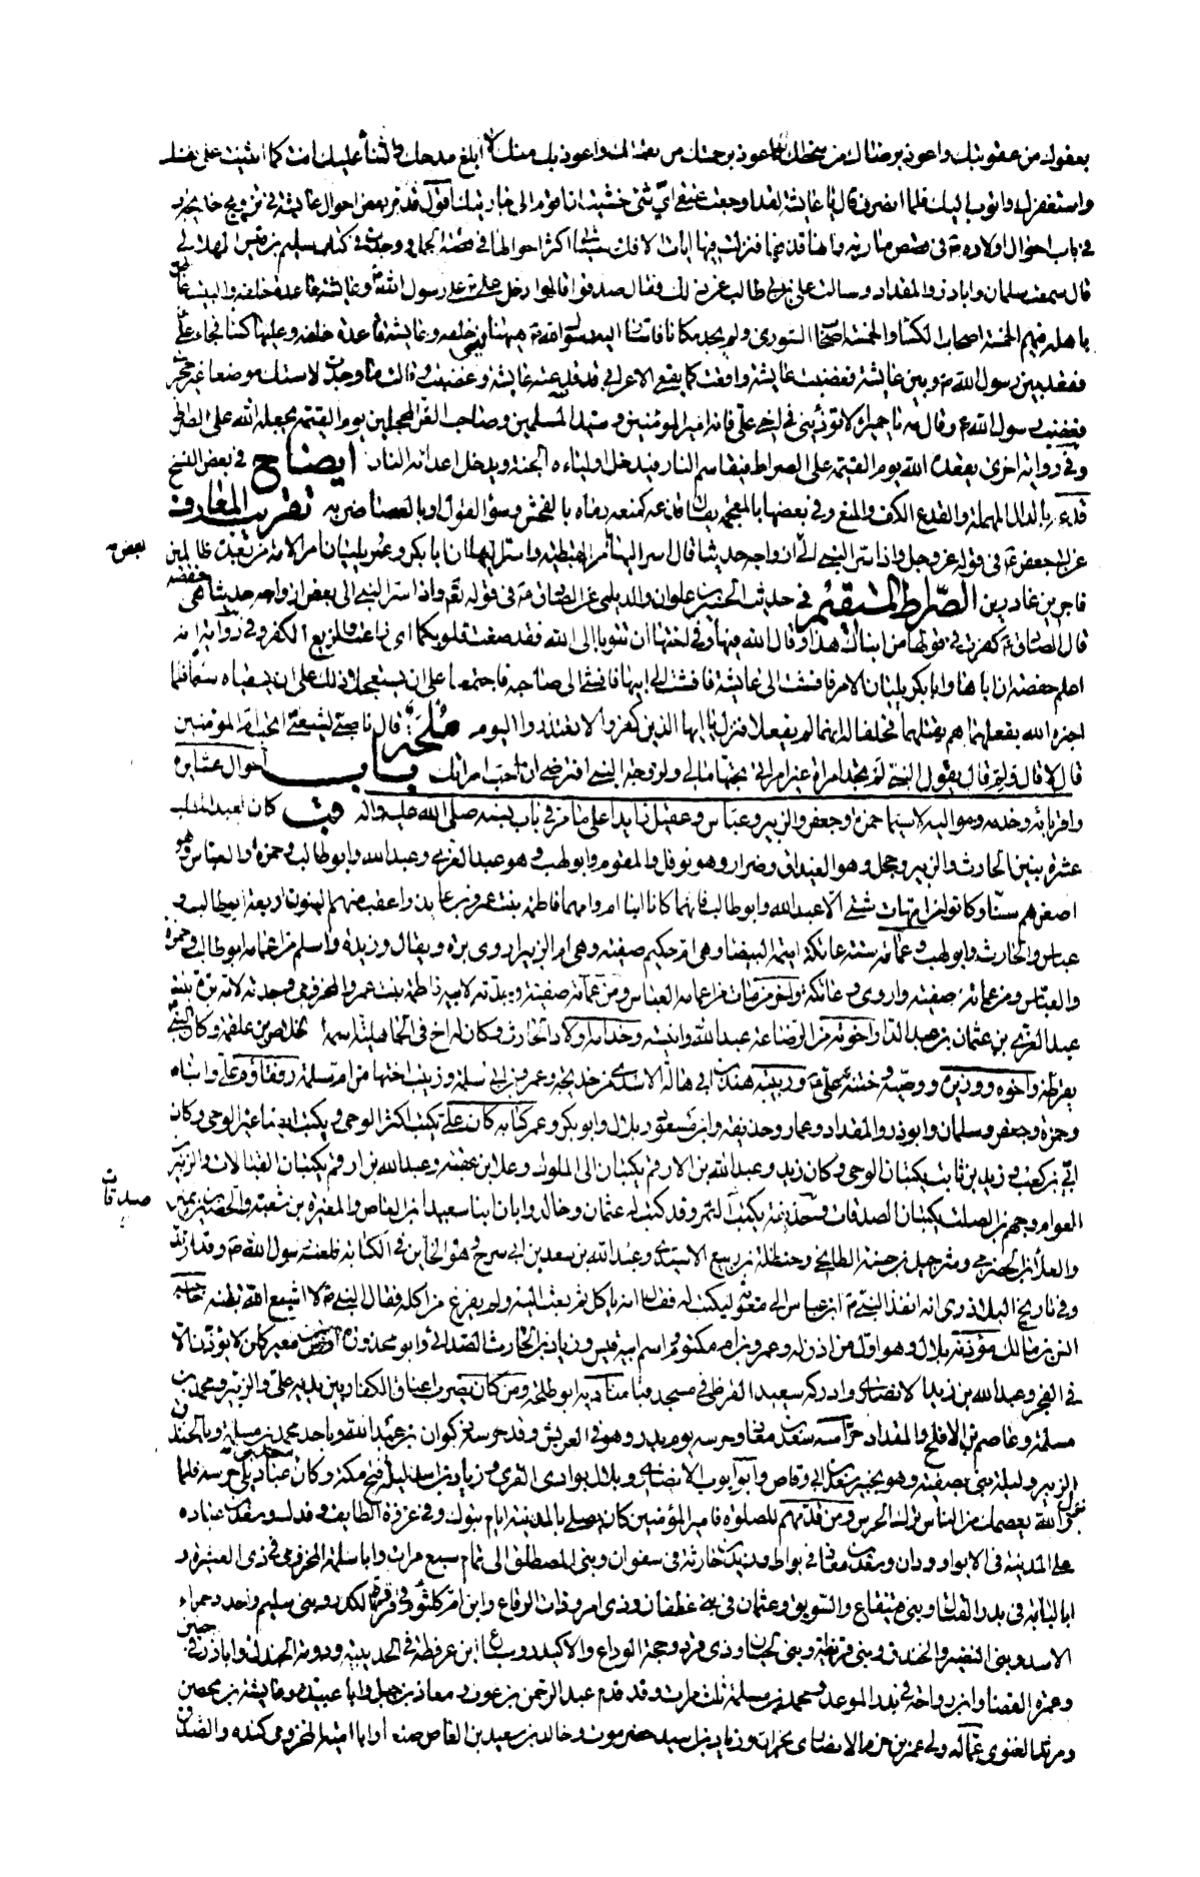 بعفوك من عقوبتك واعوذ برضاك من سخطك واعوذ برحمتك من نقمتك واعوذ بك منك لا ابلغ مدحك والثناء عليك انت كما اثنيت على نفسك
واستغفرك واتوب اليك فلما انصرف قال يا عايشة لقد اوجعت عنقي اي شئ خشيت ان اقوم الى جاريتك اقول قد مر بعض احوال عايشة في تزويج خديجة و
في باب احوال اولاده ص في قصص مارية وانها قذفتها فنزلت فيها ايات الافك اكثر احوالها في قصة الجمل وجدت في كتاب سليم بن قيس الهلالي
قال سمعت سلمان وابا ذر والمقداد وسالت علي بن ابي طالب عن ذلك فقال صدقوا قالوا دخل علي ع على رسول الله ص وعايشة قاعدة خلفه والبيت غاص
باهله فيهم الخمسة اصحاب الكساء والخمسة اصحاب الشورى ولم يجد مكانا فاشار اليه رسول الله ص ههنا يعني خلفه وعايشة قاعدة خلفه وعليها كساء فجاء علي
فقعد بين رسول الله ص وبين عايشة فغضبت عايشة واقعت كما يقعي الاعرابي قد قدعته عايشة وغضبت وقالت ما وجدت لاستك موضعا غير حجري
فغضب رسول الله ص وقال مه يا حميراء لا تؤذيني في اخي علي فانه امير المؤمنين وسيد المسلمين وصاحب الغر المحجلين يوم القيمة يجعله الله على الصراط
وفي رواية اخرى يقعده الله يوم القيمة على الصراط فيقاسم النار فيدخل اولياءه الجنة ويدخل اعداءه النار ايضاح في بعض النسخ
قدعته بالدال المهملة والقدع الكف والمنع وفي بعضها بالمعجمة يقال قذعه كمنعه رماه بالفحش وسوء القول وبالعصا ضربه تقريب المعارف
عن ابي جعفر ع في قوله عز وجل واذ اسر النبي الى بعض ازواجه حديثا قال اسر اليهما امر القبطية واسر اليهما ان ابا بكر وعمر يليان امر الامة من بعدي ظالمين
فاجرين غادرين الصراط المستقيم في حديث الحسين بن علوان والديلمي عن الصادق ع في قوله تعالى واذ اسر النبي الى بعض ازواجه حديثا هي حفصة
قال الصادق ع كفرت في قولها من انباك هذا وقال الله فيها وفي اختها ان تتوبا الى الله فقد صغت قلوبكما اي زاغت والزيغ الكفر وفي رواية انه
اعلم حفصة ان اباها وابا بكر يليان الامر فافشت الى عايشة فافشت الى ابيها فافشى الى صاحبه فاجتمعا على ان يستعجلا ذلك على ان يسقياه سما فلما
اخبره الله بفعلهما هم بقتلهما فحلفا له انهما لم يفعلا فنزل يا ايها الذين كفروا لا تعتذروا اليوم
قال لا قال ولم قال يقول
باب احوال عشايره
واقربائه وخدمه ومواليه لا سيما حمزة وجعفر والزبير وعباس وعقيل زايدا على ما مر في باب نسبه صلى الله عليه واله قب كان لعبد المطلب
عشرة بنين الحارث والزبير وحجل وهو الغيداق وضرار وهو نوفل والمقوم وابو لهب وهو عبد العزى وعبد الله وابو طالب وحمزة والعباس وهو
اصغرهم سنا وكانوا من امهات شتى الا عبد الله وابو طالب فانهما كانا ابنا ام وامهما فاطمة بنت عمرو بن عايد واعقب منهم البنون اربعة ابو طالب و
عباس والحارث وابو لهب وعماته ستة عاتكة اميمة البيضاء وهي ام حكيم صفية وهي ام الزبير اروى برة ويقال وزيدة واسلم من اعمامه ابو طالب وحمزة
والعباس ومن عماته صفية واروى وعاتكة واخر من مات من اعمامه العباس ومن عماته صفية جدته لابيه فاطمة بنت عمرو المخزومي وجدته لامه برة بنت
عبد العزى بن عثمان بن عبد الدار اخوته من الرضاعة عبد الله وانيسة وخدامة اولاد الحارث وكان له اخ في الجاهلية اسمه الخلاص بن علقمة وكان النبي
يقرظه واخوه ووزيره ووصيه وختنه علي ع وربيبه هند بن ابي هالة الاسدي من خديجة وعمر بن ابي سلمة وزينب اختهما من ام سلمة رفقاؤه علي وابناه
وحمزة وجعفر وسلمان وابو ذر والمقداد وعمار وحذيفة وابن مسعود وبلال وابو بكر وعمر كتابه كان علي يكتب اكثر الوحي ويكتب ايضا غير الوحي وكان
ابي بن كعب وزيد بن ثابت يكتبان الوحي وكان زيد وعبد الله بن الارقم يكتبان الى الملوك وعلا بن عقبة وعبد الله بن ارقم يكتبان القبالات والزبير بن
العوام وجهم بن الصلت يكتبان الصدقات وحذيفة يكتب التمر وقد كتب له عثمان وخالد وابان ابنا سعيد بن العاص والمغيرة بن شعبة والحصين بن نمير
والعلاء بن الحضرمي وشرحبيل بن حسنة الطابخي وحنظلة بن ربيع الاسيدي وعبد الله بن سعد بن ابي سرح وهو الخاين في الكتابة فلعنه رسول الله ص وقد ارتد
وفي تاريخ البلاذري انه انفذ النبي ص ابن عباس الى معوية ليكتب له فقال انه ياكل ثم بعث اليه ولم يفرغ من اكله فقال النبي ص لا اشبع الله بطنه حاجبه
انس بن مالك مؤذنه بلال وهو اول من اذن له وعمرو بن ام مكتوم واسم ابيه قيس وزياد بن الحارث الصدائي وابو محذورة اوس بن معير كان لا يؤذن الا
في الفجر وعبد الله بن زيد الانصاري وادركه سعد القرظي في مسجد قبا مناديه ابو طلحة ومن كان يضرب اعناق الكفار بين يديه علي والزبير ومحمد بن
مسلمة وعاصم بن الافلح والمقداد حراسه سعد بن معاذ حرسه يوم بدر وهو في العريش وقد حرسه ذكوان بن عبد الله وباحد محمد بن مسلمة وبالخندق
الزبير وليلة بنى بصفية وهو بخيبر سعد بن ابي وقاص وابو ايوب الانصاري وبلال بوادي القرى وزياد بن اسد ليلة فتح مكة وكان عباد يلي حرسه فلما
نزل والله يعصمك من الناس ترك الحرس ومن قدمهم للصلوة فامير المؤمنين كان يصلي بالمدينة ايام تبوك وفي غزوة الطايف وفدك وسعد بن عبادة
على المدينة في الابواء وودان وسعد بن معاذ في بواط وزيد بن حارثة في سفوان وبني المصطلق الى تمام سبع مرات وابا سلمة المخزومي في ذي العشيرة و
ابا لبابة في بدر القتال وبني قينقاع والسويق وعثمان في بني غطفان وذي امر وذات الرقاع وابن ام مكتوم في قرقرة الكدر وبني سليم واحد وحمراء
الاسد وبني النضير والخندق وبني قريظة وبني لحيان وذي قرد وحجة الوداع والاكيدر وسباع بن عرفطة في الحديبية ودومة الجندل وابا ذر في حنين
وعمرة القضاء وابن رواحة في بدر الموعد ومحمد بن مسلمة ثلث مرات وقد قدم عبد الرحمن بن عوف ومعاذ بن جبل وابا عبيدة وعايشة بن محصن
ومرثد الغنوي عماله ولى عمرو بن حزم الانصاري نجران وزياد بن اسيد حضرموت وخالد بن سعيد بن العاص صنعاء وابا امية المخزومي كندة والصدف
بعض
صدقات